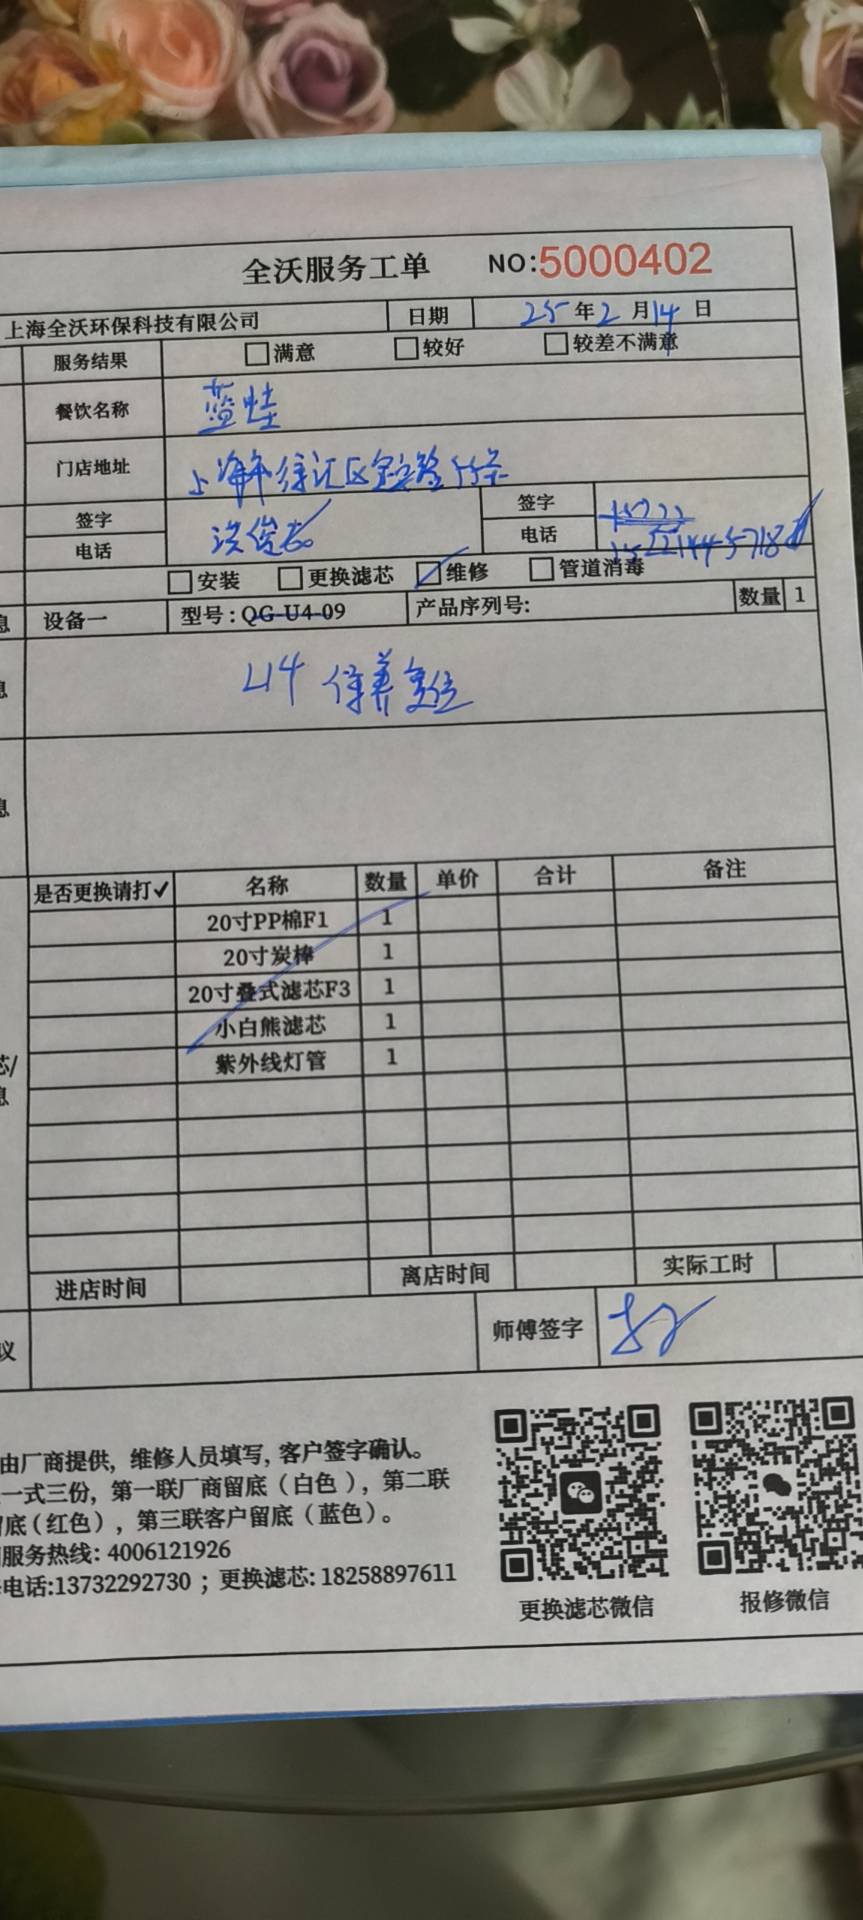 全沃服务工单 NO:5000402
上海全沃环保科技有限公司 日期 25年2月14日
服务结果 满意 较好 较差不满意
餐饮名称 蓝蛙
门店地址 上海市徐汇区
签字 签字
电话 电话
安装 更换滤芯 维修 管道消毒
息 设备一 型号:QG-U4-09 产品序列号: 数量 1
息 U4 保养复位
息
是否更换请打✓ 名称 数量 单价 合计 备注
20寸PP棉F1 1
20寸炭棒 1
20寸叠式滤芯F3 1
小白熊滤芯 1
芯/ 紫外线灯管 1
息
进店时间 离店时间 实际工时
议 师傅签字
由厂商提供, 维修人员填写, 客户签字确认。
一式三份, 第一联厂商留底(白色), 第二联
底(红色), 第三联客户留底(蓝色)。
服务热线: 4006121926
电话:13732292730 ; 更换滤芯: 18258897611
更换滤芯微信 报修微信